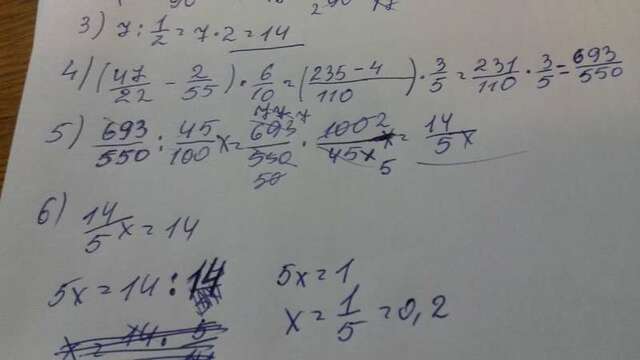 3) 7 : 1/2 = 7 · 2 = 14
4) (47/22 - 2/55) · 6/10 = (235-4/110) · 3/5 = 231/110 · 3/5 = 693/550
5) 693/550 : 45/100 x = 693/550 · 100/45x = 14/5x
50 5
6) 14/5x = 14
5x = 14 : 14
5x = 1
x = 1/5 = 0,2